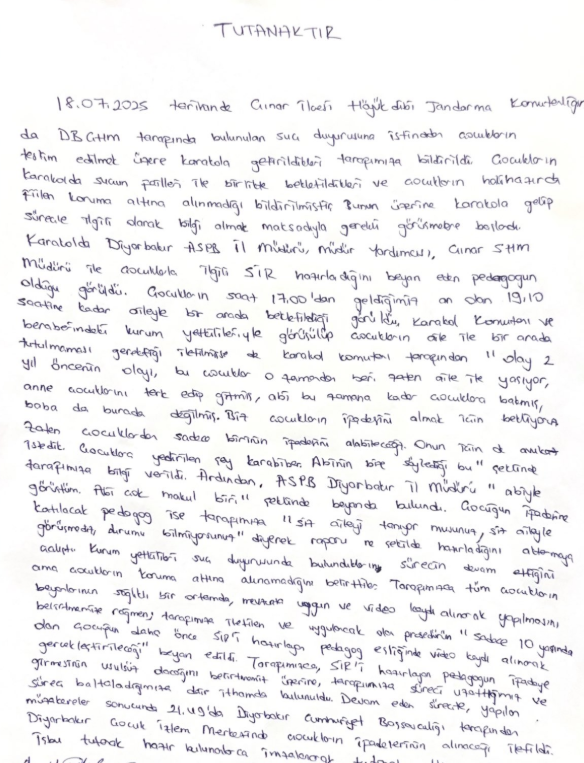 TUTANAKTIR
18.07.2025 tarihinde Çınar İlçesi Höyükdibi Jandarma Komutanlığın
da DBÇHM tarafında bulunulan suç duyurusuna istinaden çocukların
teslim edilmek üzere karakola getirildikleri tarafımıza bildirildi. Çocukların
karakolda suçun failleri ile birlikte bekletildikleri ve çocukların halihazırda
fiilen koruma altına alınmadığı bildirilmiştir. Bunun üzerine karakola gelip
süreçle ilgili olarak bilgi almak maksadıyla gerekli görüşmelere başladı.
Karakolda Diyarbakır ASPB İl Müdürü, Müdür Yardımcısı, Çınar SHM
Müdürü ile çocuklarla ilgili SİR hazırladığını beyan eden pedagogun
olduğu görüldü. Çocukların saat 17.00'dan geldiğimiz an olan 19.10
saatine kadar aileyle bir arada bekletildiği görüldü, Karakol Komutanı ve
beraberindeki kurum yetkilileriyle görüşülüp çocukların aile ile bir arada
tutulmaması gerektiği iletilmişse de karakol komutanı tarafından "olay 2
yıl öncenin olayı, bu çocuklar o zamandan beri zaten aile ile yaşıyor,
anne çocuklarını terk edip gitmiş, abi bu zamana kadar çocuklara bakmış,
baba da burada değilmiş. Biz çocukların ifadesini almak için bekliyoruz
zaten çocuklardan sadece birinin ifadesini alabileceğiz. Onun için de avukat
istedik. Çocuklara yedirilen şey karabiber. Abinin bize söylediği bu" şeklinde
tarafımıza bilgi verildi. Ardından, ASPB Diyarbakır İl Müdürü "abiyle
görüştüm. Abi çok makul biri." şeklinde beyanda bulundu. Çocuğun ifadesine
katılacak pedagog ise tarafımıza "siz aileyi tanıyor musunuz, siz aileyle
görüşmediz, durumu bilmiyorsunuz" diyerek raporu ne şekilde hazırladığını aktarmaya
çalıştı. Kurum yetkilileri suç duyurusunda bulunduklarını sürecin devam ettiğini
ama çocukların koruma altına alınamadığını belirttiler. Tarafımızca tüm çocukların
beyanlarının sağlıklı bir ortamda, mevzuata uygun ve video kaydı alınarak yapılmasını
belirtmemize rağmen, tarafımıza iletilen ve uygulanacak olan prosedürün "sadece 10 yaşında
olan çocuğun daha önce SİR'i hazırlayan pedagog eşliğinde video kaydı alınarak
gerçekleştirileceği" beyan edildi. Tarafımızca, SİR'i hazırlayan pedagogun ifadeye
girmesinin usulsüz olacağını belirtmemiz üzerine, tarafımıza süreci uzattığımız ve
süreci baltaladığımıza dair ithamda bulunuldu. Devam eden süreçte, yapılan
müzakereler sonucunda 21.49'da Diyarbakır Cumhuriyet Başsavcılığı tarafından
Diyarbakır Çocuk İzlem Merkezinde çocukların ifadelerinin alınacağı iletildi.
İşbu tutanak hazır bulunanlarca imzalanarak